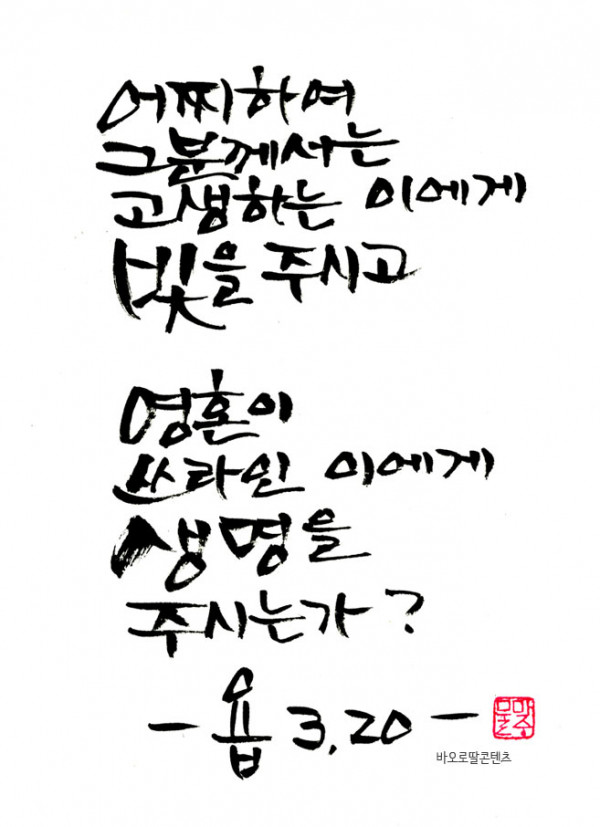 어찌하여
그분께서는
고생하는 이에게
빛을 주시고
영혼이
쓰라린 이에게
생명을
주시는가?
- 욥 3,20 -
바오로딸콘텐츠